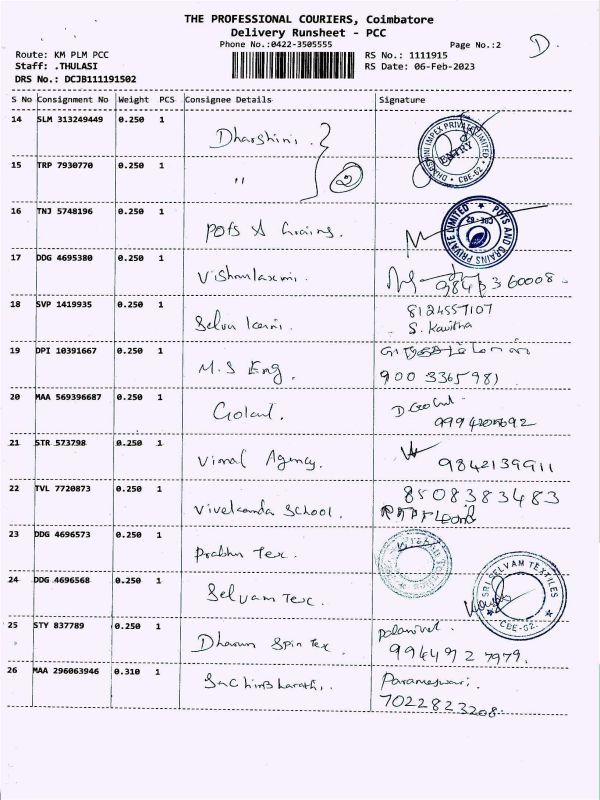 THE PROFESSIONAL COURIERS, Coimbatore
Delivery Runsheet - PCC
Phone No.:0422-3505555
Page No.:2
D.
Route: KM PLM PCC
RS No.: 1111915
Staff: .THULASI
RS Date: 06-Feb-2023
DRS No.: DCJB111191502
S No Consignment No Weight PCS Consignee Details Signature
14 SLM 313249449 0.250 1 Dharshini. ENTRY CBE-62
15 TRP 7930770 0.250 1 " 2
16 TNJ 5748196 0.250 1 Pots & Grains. POTS AND GRAINS PRIVATE LIMITED
17 DDG 4695380 0.250 1
18 SVP 1419935 0.250 1 Selva 8124557107
S. Kavitha
19 DPI 10391667 0.250 1 M.S Eng.
900 3365981
20 MAA 569396687 0.250 1 D. Gokul
21 STR 573798 0.250 1 Vimal Agency. 9842139911
22 TVL 7720873 0.250 1 School. 8508383483
23 DDG 4696573 0.250 1 Prabhu Tex.
24 DDG 4696568 0.250 1 Selvam Tex. SRI SELVAM TEXTILES CBE-62.
25 STY 837789 0.250 1 Dharun Spin Tex. Palanivel.
99449 2 7979.
26 MAA 296063946 0.310 1 SachinBharathi. Parameswari.
7022823208